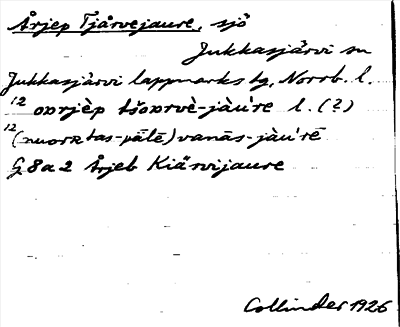 Årjep Tjårvejaure, sjö
Jukkasjärvi sn
Jukkasjärvi lappmarks tg, Norrb. l.
12 oɒrjèp tšoɒrvè-jàu're l. (?)
12 (nuorɒtas-pälē) vanās-jàu'rē
G 8 a 2 Årjeb Kiärvijaure
Collinder 1926